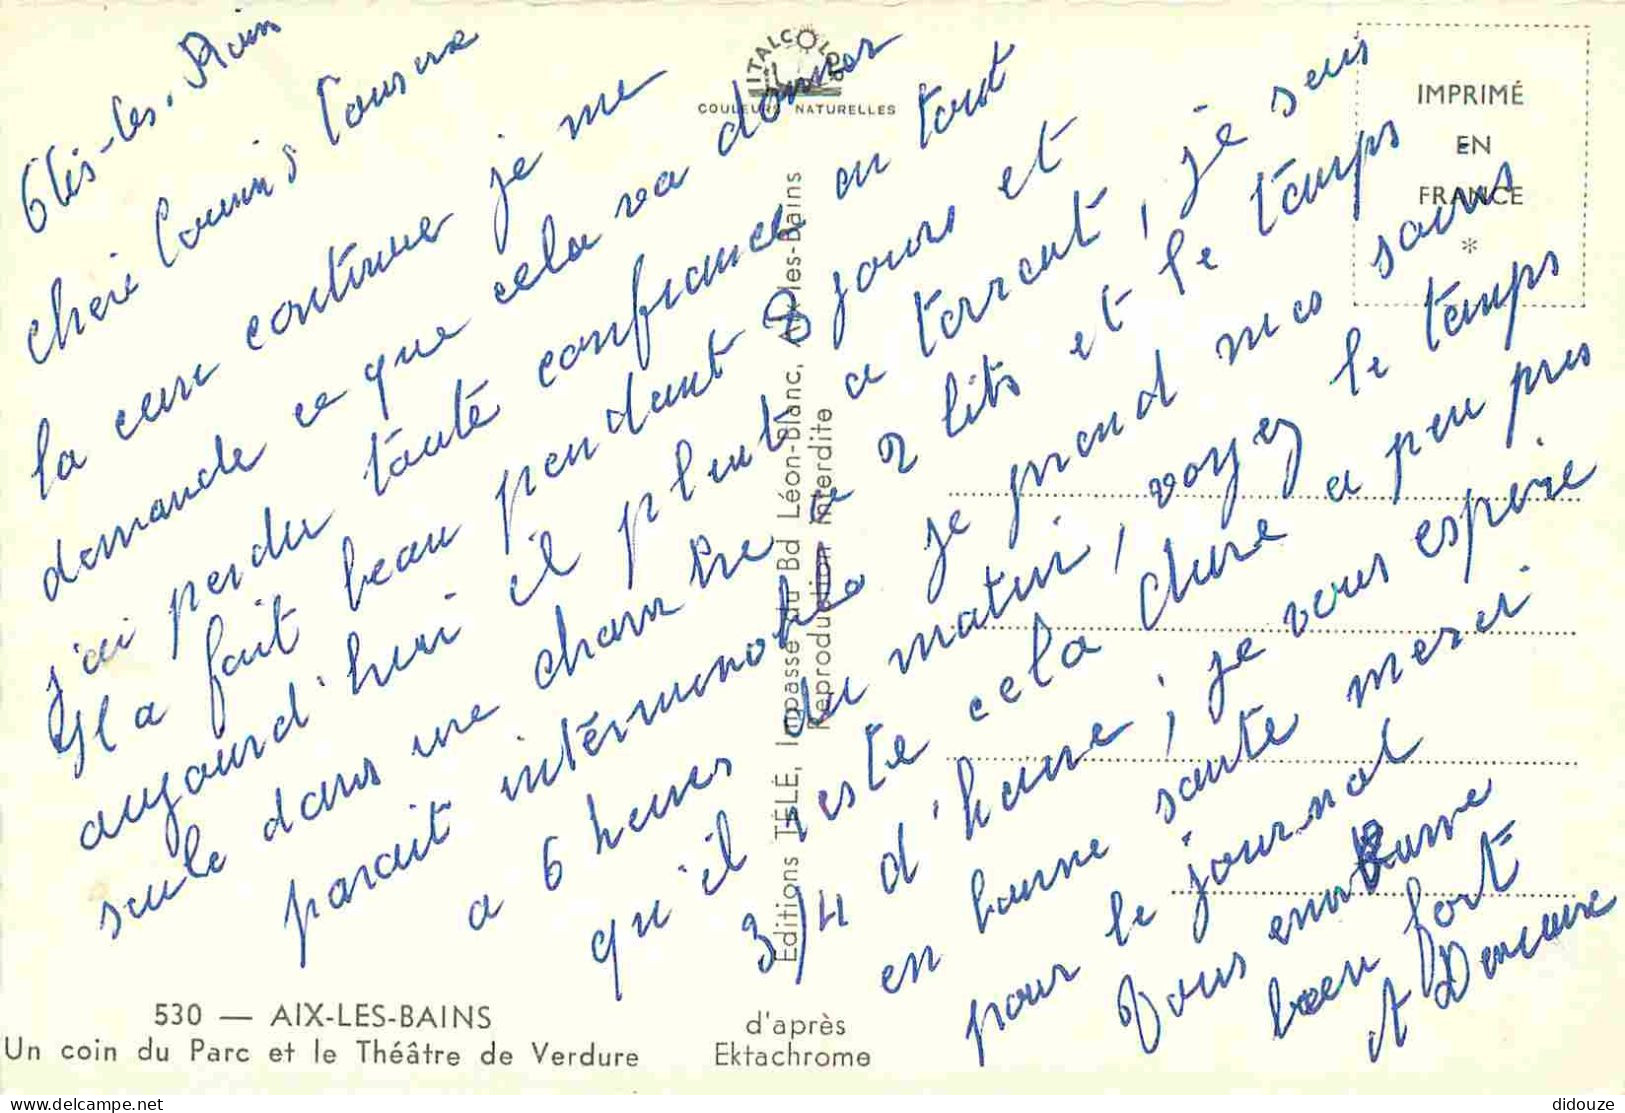 Aix-les-Bains
chers Cousins Cousine
la cure continue je me
demande ce que cela va donner
j'ai perdu toute confiance en tout
Il a fait beau pendant 8 jours et
aujourd'hui il pleut a torrent, je suis
seule dans une chambre de 2 lits et le temps
parait intérminable je prend mes soins
a 6 heures du matin, voyez le temps
qu'il reste cela dure a peu pres
3/4 d'heure, je vous espère
en bonne sante merci
pour le journal
Vous embrasse
bien fort
A
ITALCOLOR
COULEURS NATURELLES
IMPRIMÉ
EN
FRANCE
*
Editions TÉLÉ, Impasse du Bd Léon-Blanc, Aix-les-Bains
Reproduction interdite
530 — AIX-LES-BAINS
Un coin du Parc et le Théâtre de Verdure
d'après
Ektachrome
delcampe.net
didouze